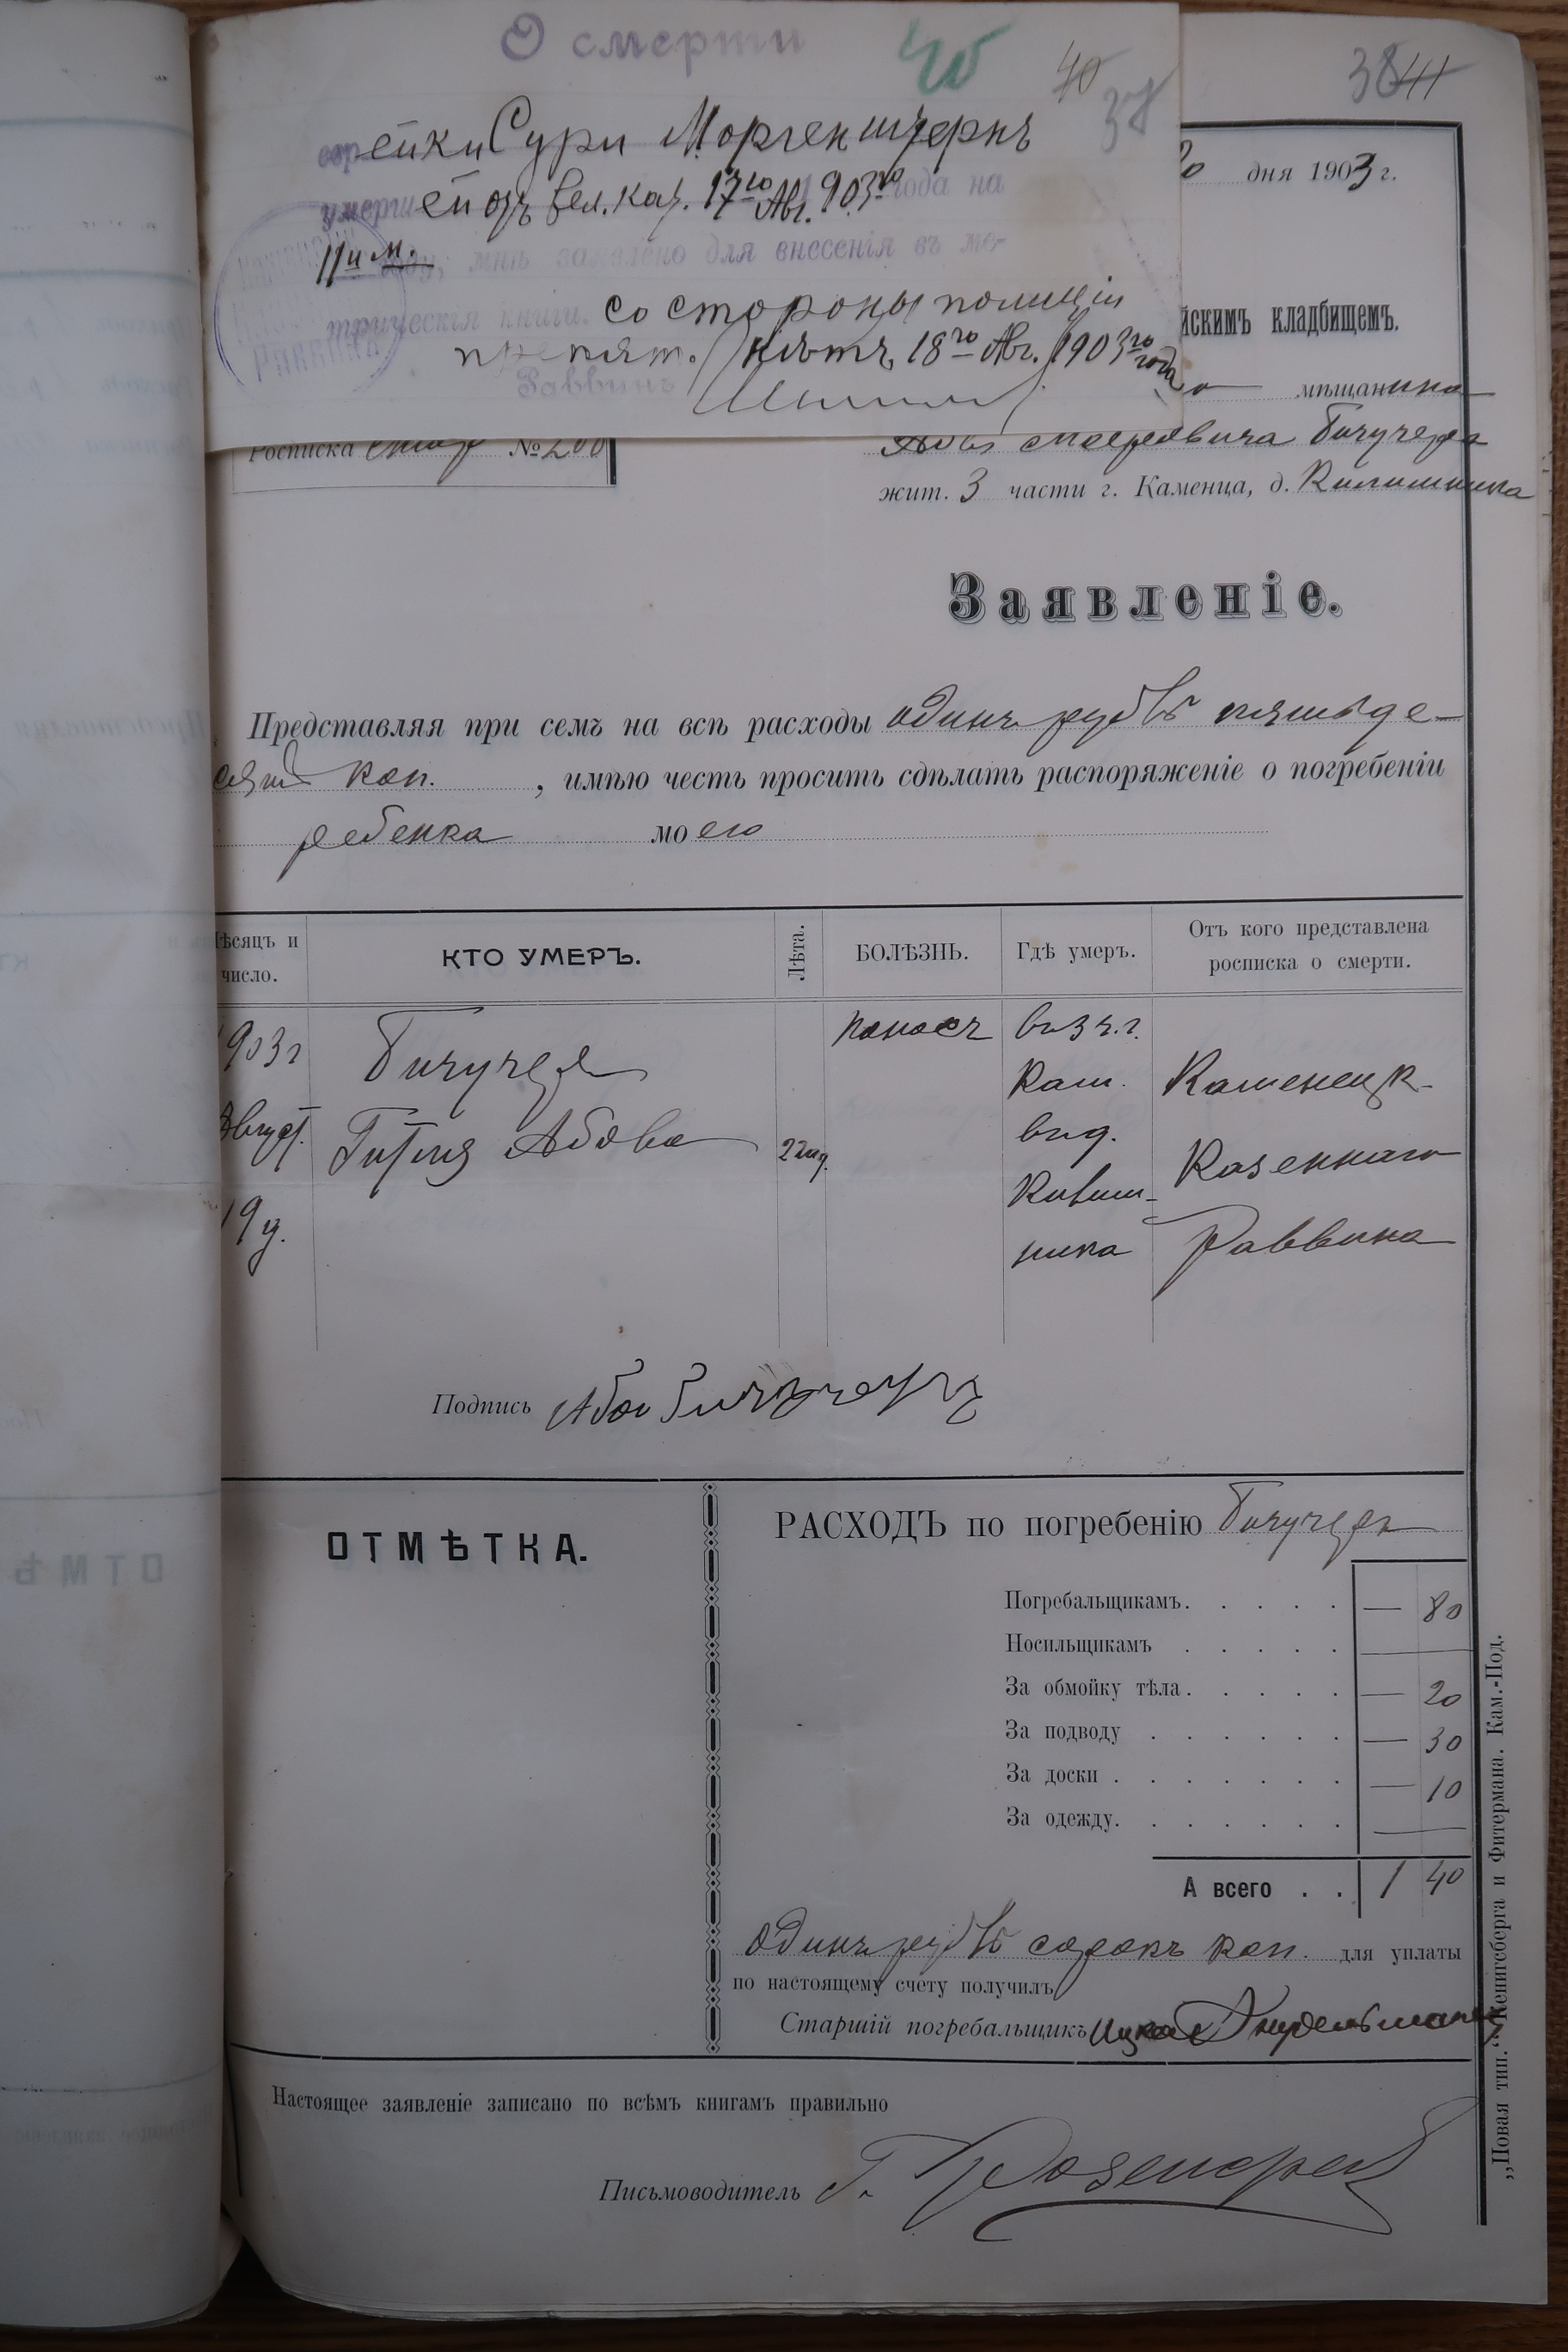 О смерти
40 40 38 38 41
ейки Суры Моргенштернъ
умерш ей отъ вел. каш. 17го Авг. 903го года на
11 и м. году, мнѣ заявлено для внесенія въ ме-
трическія книги. со стороны полиціи
препят. нѣтъ 18го Авг. 1903го года
Раввинъ
20 дня 1903 г.
йскимъ кладбищемъ.
мѣщанина
Росписка №200
Бичучера
жит. 3 части г. Каменца, д.
Заявленіе.
Представляя при семъ на всѣ расходы одинъ рубль пятьде-
сятъ коп. , имѣю честь просить сдѣлать распоряженіе о погребеніи
ребенка моего
Мѣсяцъ и число. КТО УМЕРЪ. Лѣта. БОЛѢЗНЬ. Гдѣ умеръ. Отъ кого представлена росписка о смерти.
1903 г Бичучеръ поносъ въ 3 ч. г.
Кам. Каменецк-
Август. Гитля Абова в д.
Казеннаго
19 д. ника Раввина
Подпись Абa Бичучеръ
ОТМѢТКА.
РАСХОДЪ по погребенію Бичучеръ
Погребальщикамъ. — 80
Носильщикамъ —
За обмойку тѣла. — 20
За подводу — 30
За доски — 10
За одежду. —
А всего 1 40
одинъ рубль сорокъ коп. для уплаты
по настоящему счету получилъ
Старшій погребальщикъ Ицко
Настоящее заявленіе записано по всѣмъ книгамъ правильно
Письмоводитель Г. Розенфельд
„Новая тип.“ Кенигсберга и Фитермана. Кам.-Под.